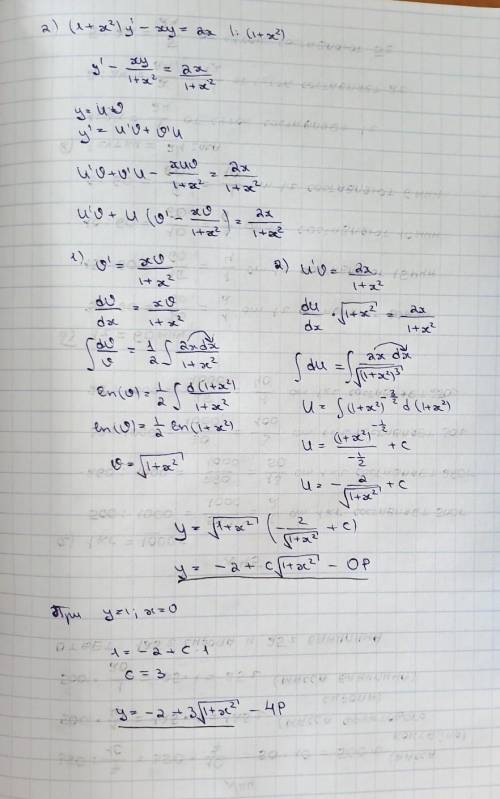 2) (1+x²)y' − xy = 2x |: (1+x²)
y' − xy/(1+x²) = 2x/(1+x²)
y = uϑ
y' = u'ϑ + ϑ'u
u'ϑ + ϑ'u − xuϑ/(1+x²) = 2x/(1+x²)
u'ϑ + u(ϑ' − xϑ/(1+x²)) = 2x/(1+x²)
1) ϑ' = xϑ/(1+x²)
dϑ/dx = xϑ/(1+x²)
∫dϑ/ϑ = 1/2 ∫2xdx/(1+x²)
ln(ϑ) = 1/2 ∫d(1+x²)/(1+x²)
ln(ϑ) = 1/2 ln(1+x²)
ϑ = √(1+x²)
2) u'ϑ = 2x/(1+x²)
du/dx · √(1+x²) = 2x/(1+x²)
∫du = ∫2x dx/√(1+x²)³
u = ∫(1+x²)^(-3/2) d(1+x²)
u = (1+x²)^(-1/2)/(-1/2) + c
u = − 2/√(1+x²) + c
y = √(1+x²) (− 2/√(1+x²) + c)
y = −2 + c√(1+x²) − ОР
При y=1; x=0
1 = −2 + c·1
c = 3
y = −2 + 3√(1+x²) − ЧР